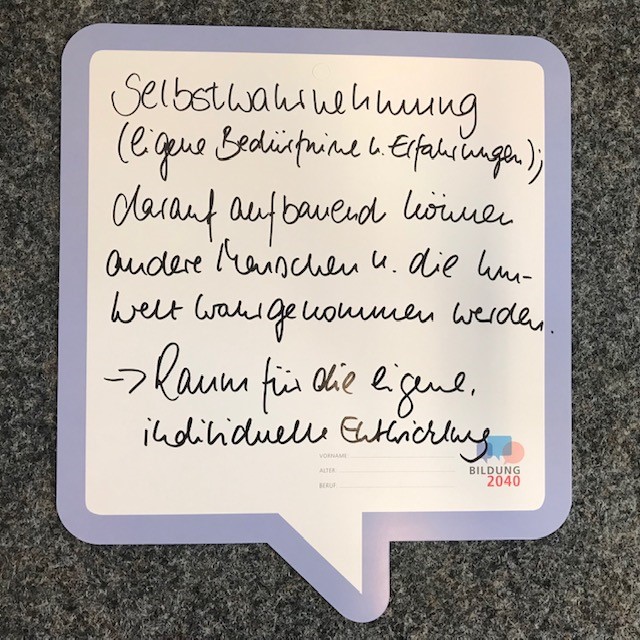 Selbstwahrnehmung
(eigene Bedürfnisse u. Erfahrungen);
darauf aufbauend können
andere Menschen u. die Um-
welt wahrgenommen werden.
-> Raum für die eigene,
individuelle Entwicklung
VORNAME:
ALTER:
BERUF:
BILDUNG
2040